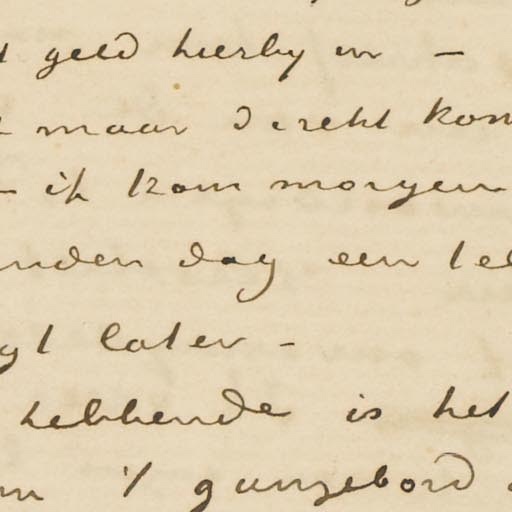 geld hierby in –
maar direkt kom
– ik kom morgen
nden dag een te
gt later –
hebbende is het
't ganzebord